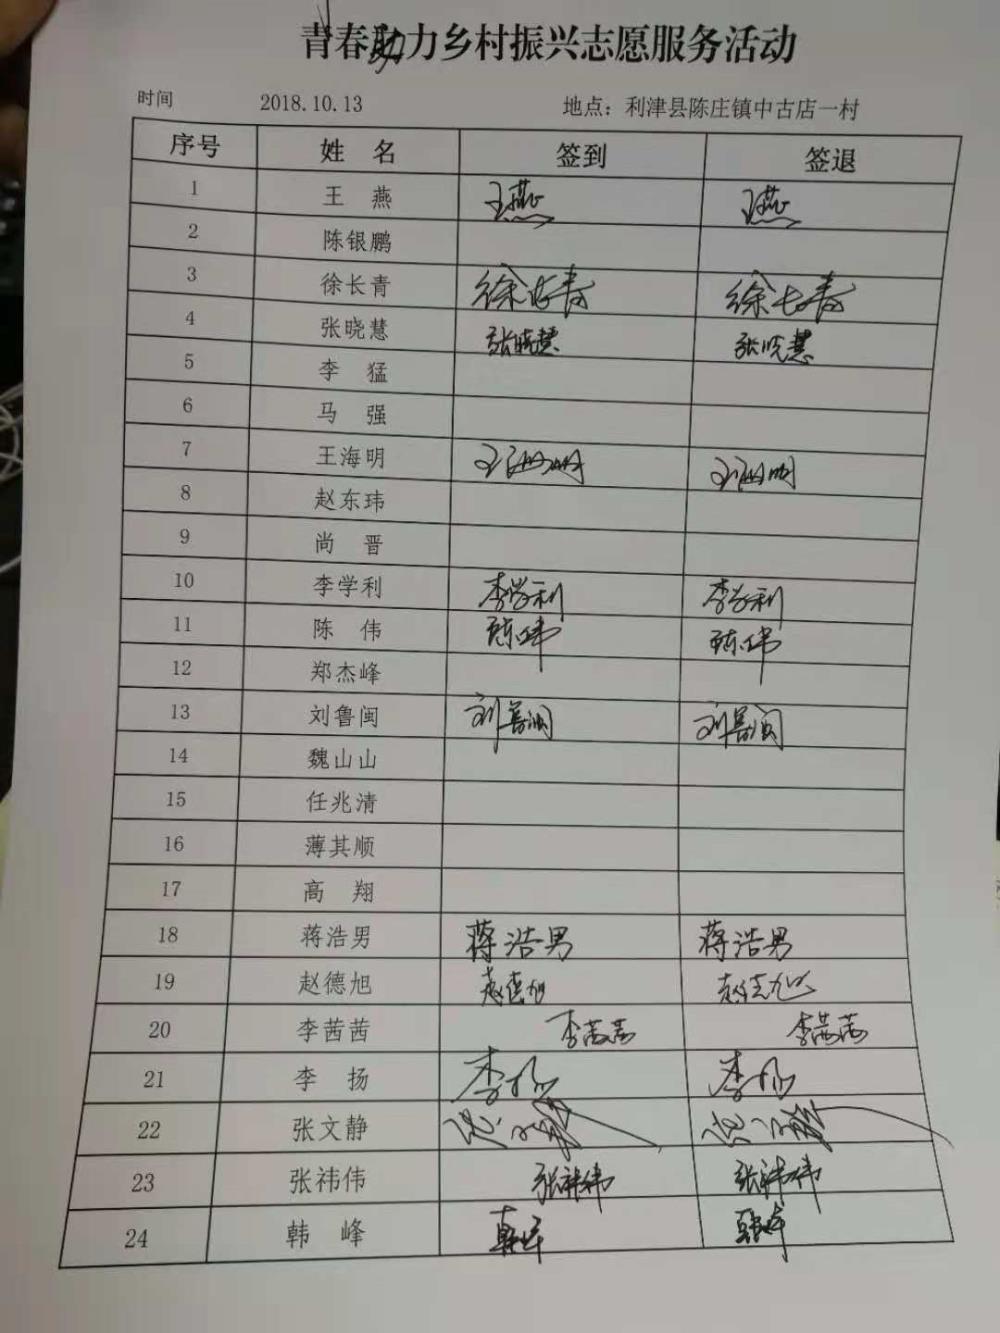 青春助力乡村振兴志愿服务活动
时间 2018.10.13 地点：利津县陈庄镇中古店一村
序号 姓 名 签到 签退
1 王 燕 王燕 王燕
2 陈银鹏
3 徐长青 徐长青 徐长青
4 张晓慧 张晓慧 张晓慧
5 李 猛
6 马 强
7 王海明 王海明 王海明
8 赵东玮
9 尚 晋
10 李学利 李学利 李学利
11 陈 伟 陈伟 陈伟
12 郑杰峰
13 刘鲁闽 刘鲁闽 刘鲁闽
14 魏山山
15 任兆清
16 薄其顺
17 高 翔
18 蒋浩男 蒋浩男 蒋浩男
19 赵德旭 赵德旭 赵德旭
20 李茜茜 李茜茜 李茜茜
21 李 扬 李扬 李扬
22 张文静 张文静 张文静
23 张祎伟 张祎伟 张祎伟
24 韩 峰 韩峰 韩峰